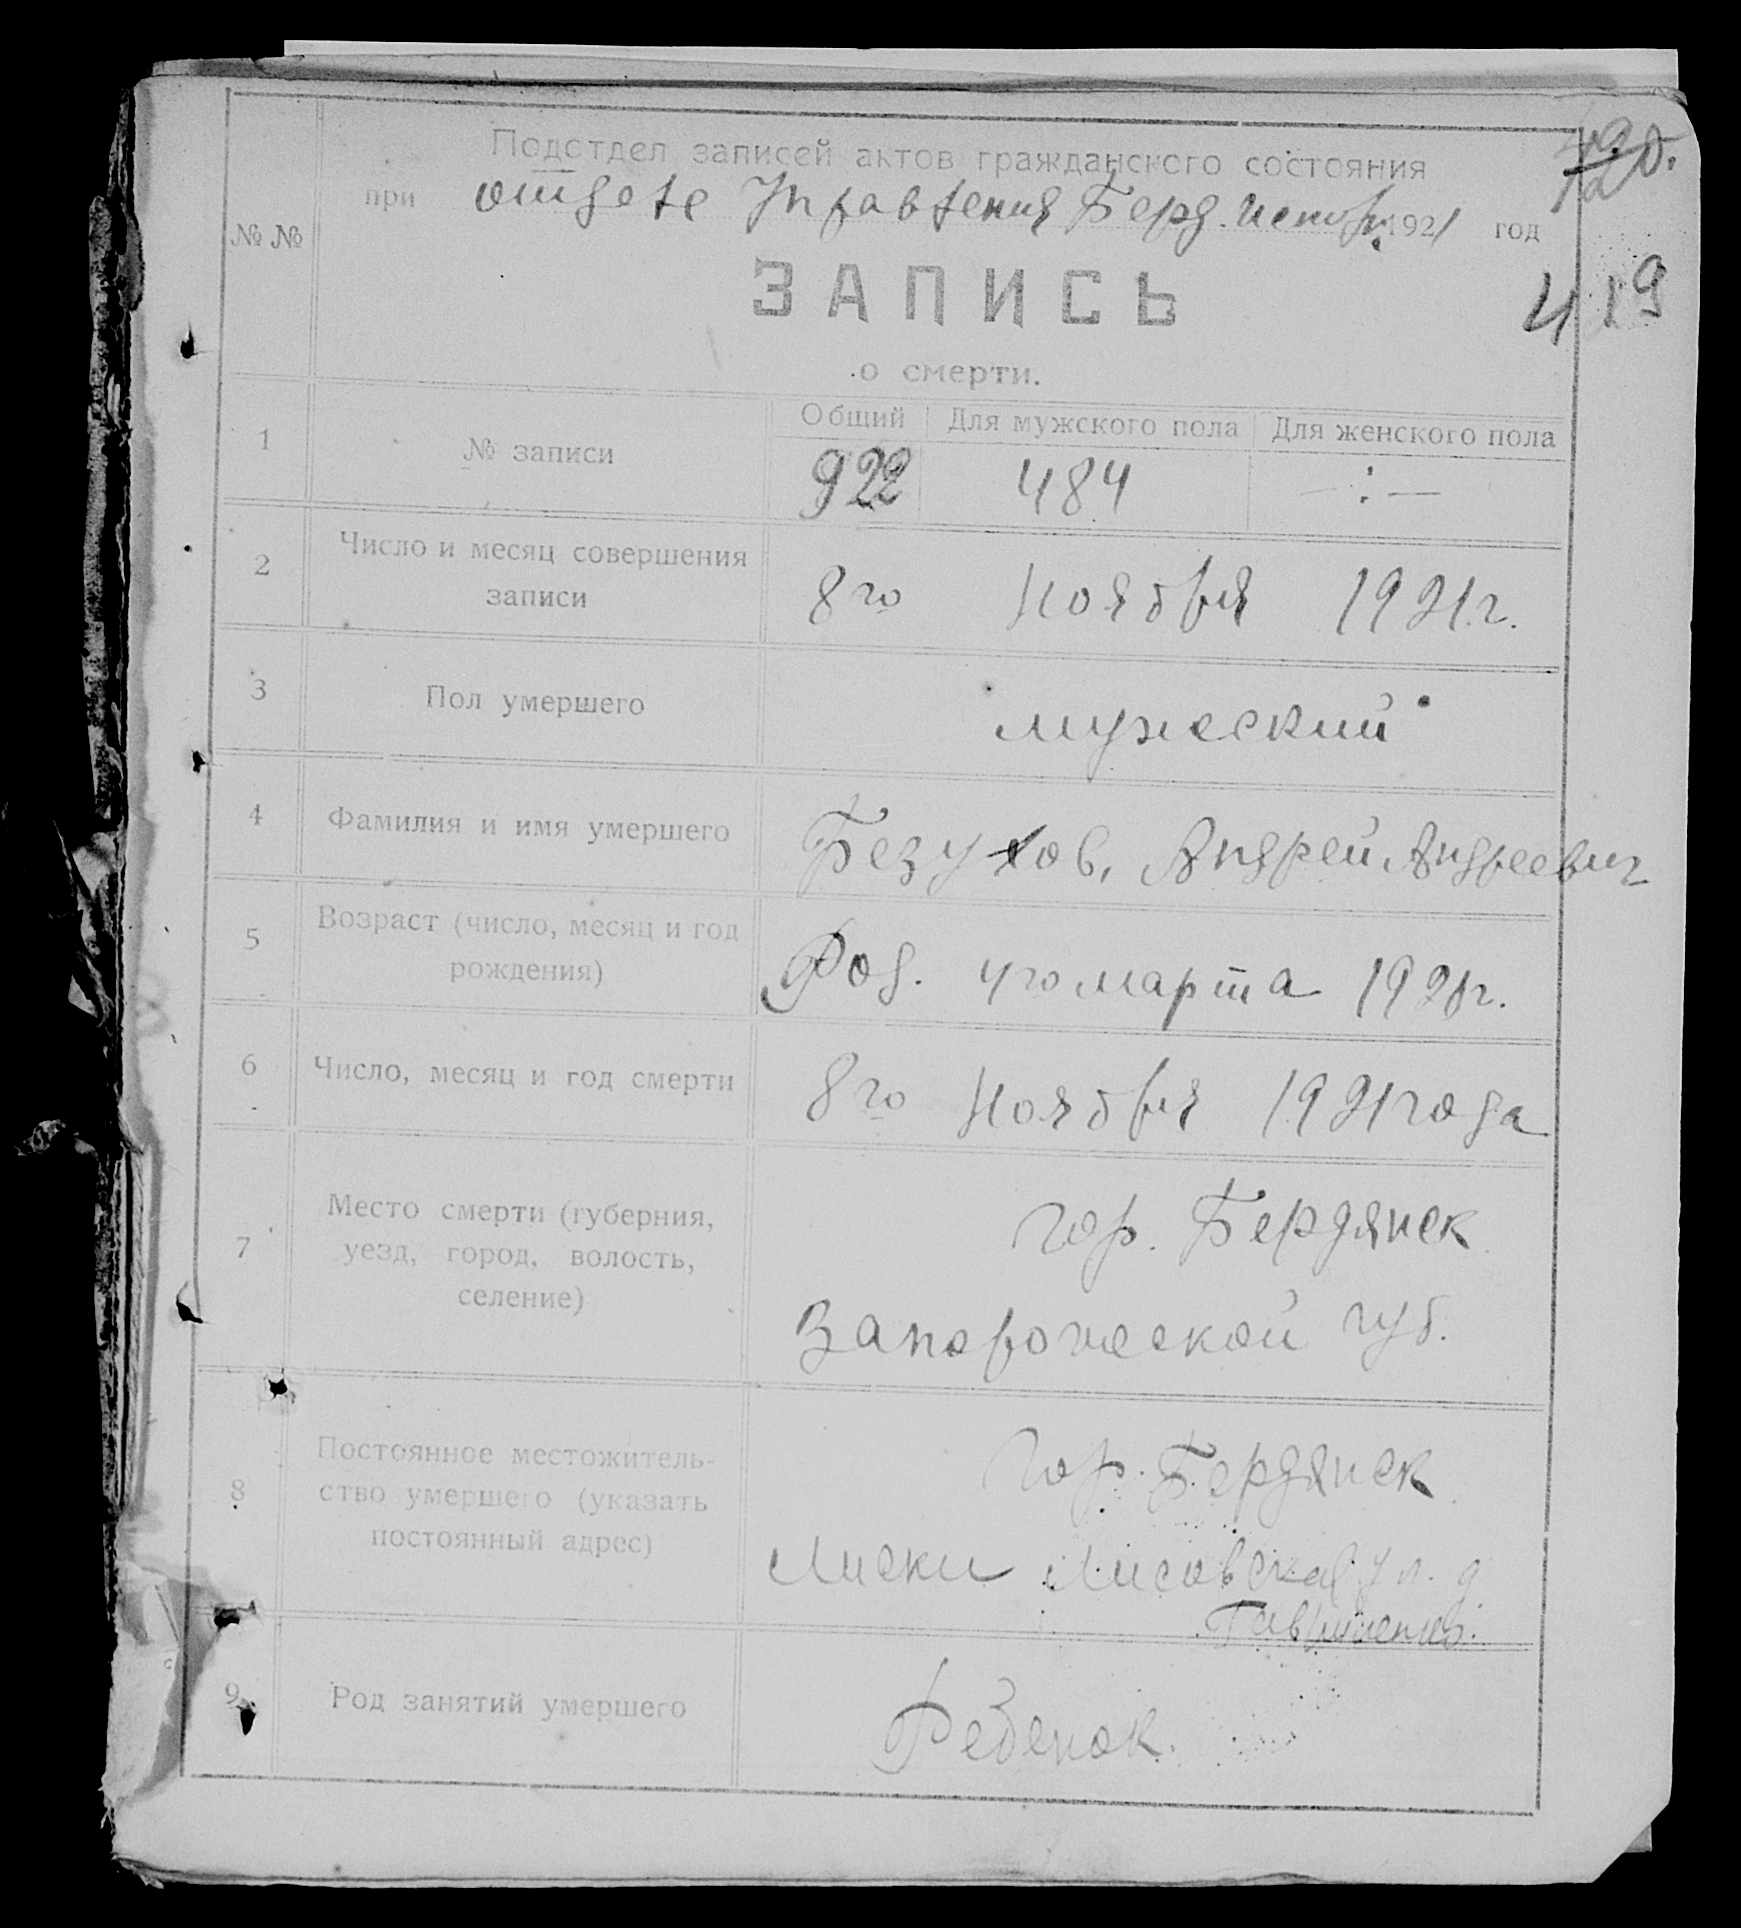 Подотдел записей актов гражданского состояния
при отделе Управления Берд. исполк. 1921 год
№ №
419
ЗАПИСЬ
о смерти.
1 № записи Общий Для мужского пола Для женского пола
922 484 — : —
2 Число и месяц совершения
записи
8го Ноября 1921 г.
3 Пол умершего мужеский
4 Фамилия и имя умершего Безухов, Андрей Андреевич
5 Возраст (число, месяц и год
рождения)
Род. 4го марта 1921г.
6 Число, месяц и год смерти 8го Ноября 1921 года
7 Место смерти (губерния,
уезд, город, волость,
селение)
гор. Бердянск
Запорожской губ.
8 Постоянное местожитель-
ство умершего (указать
постоянный адрес)
гор. Бердянск
Лиски Лисовская ул. д
9 Род занятий умершего Ребенок.